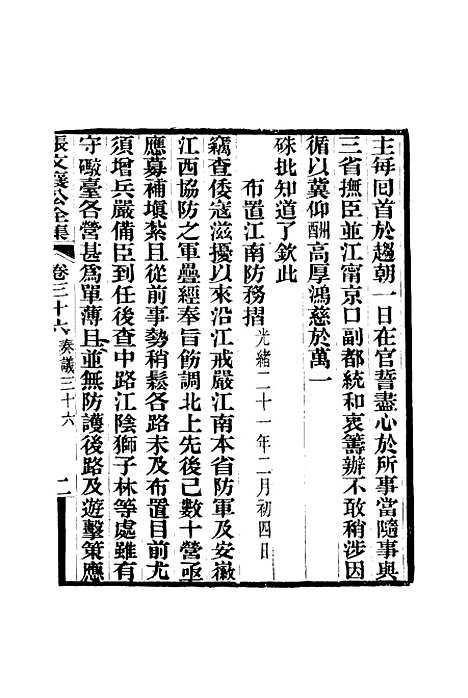 主每回首於趨朝一日在官誓盡心於所事當隨事與
三省撫臣並江甯京口副都統和衷籌辦不敢稍涉因
循以冀仰酬高厚鴻慈於萬一
硃批知道了欽此
布置江南防務摺 光緒二十一年二月初四日
竊查倭寇滋擾以來沿江戒嚴江南本省防軍及安徽
江西協防之軍疊經奉旨飭調北上先後已數十營亟
應募補填紮且從前事勢稍鬆各路未及布置目前尤
須增兵嚴備臣到任後查中路江陰獅子林等處雖有
守礮臺各營甚為單薄且並無防護後路及遊擊策應
張文襄公全集 卷三十六 奏議三十六 二